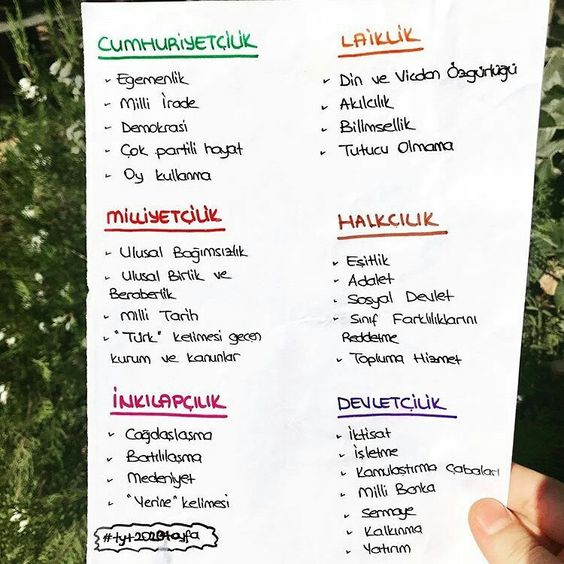 CUMHURİYETÇİLİK
- Egemenlik
- Milli İrade
- Demokrasi
- Çok partili hayat
- Oy kullanma
MİLLİYETÇİLİK
- Ulusal Bağımsızlık
- Ulusal Birlik ve
Beraberlik
- Milli Tarih
- "Türk" kelimesi geçen
kurum ve kanunlar
İNKILAPÇILIK
- Çağdaşlaşma
- Batılılaşma
- Medeniyet
- "Yerine" kelimesi
LAİKLİK
- Din ve Vicdan Özgürlüğü
- Akılcılık
- Bilimsellik
- Tutucu Olmama
HALKÇILIK
- Eşitlik
- Adalet
- Sosyal Devlet
- Sınıf Farklılıklarını
Reddetme
- Topluma Hizmet
DEVLETÇİLİK
- İktisat
- İşletme
- Kamulaştırma Çabaları
- Milli Banka
- Sermaye
- Kalkınma
- Yatırım